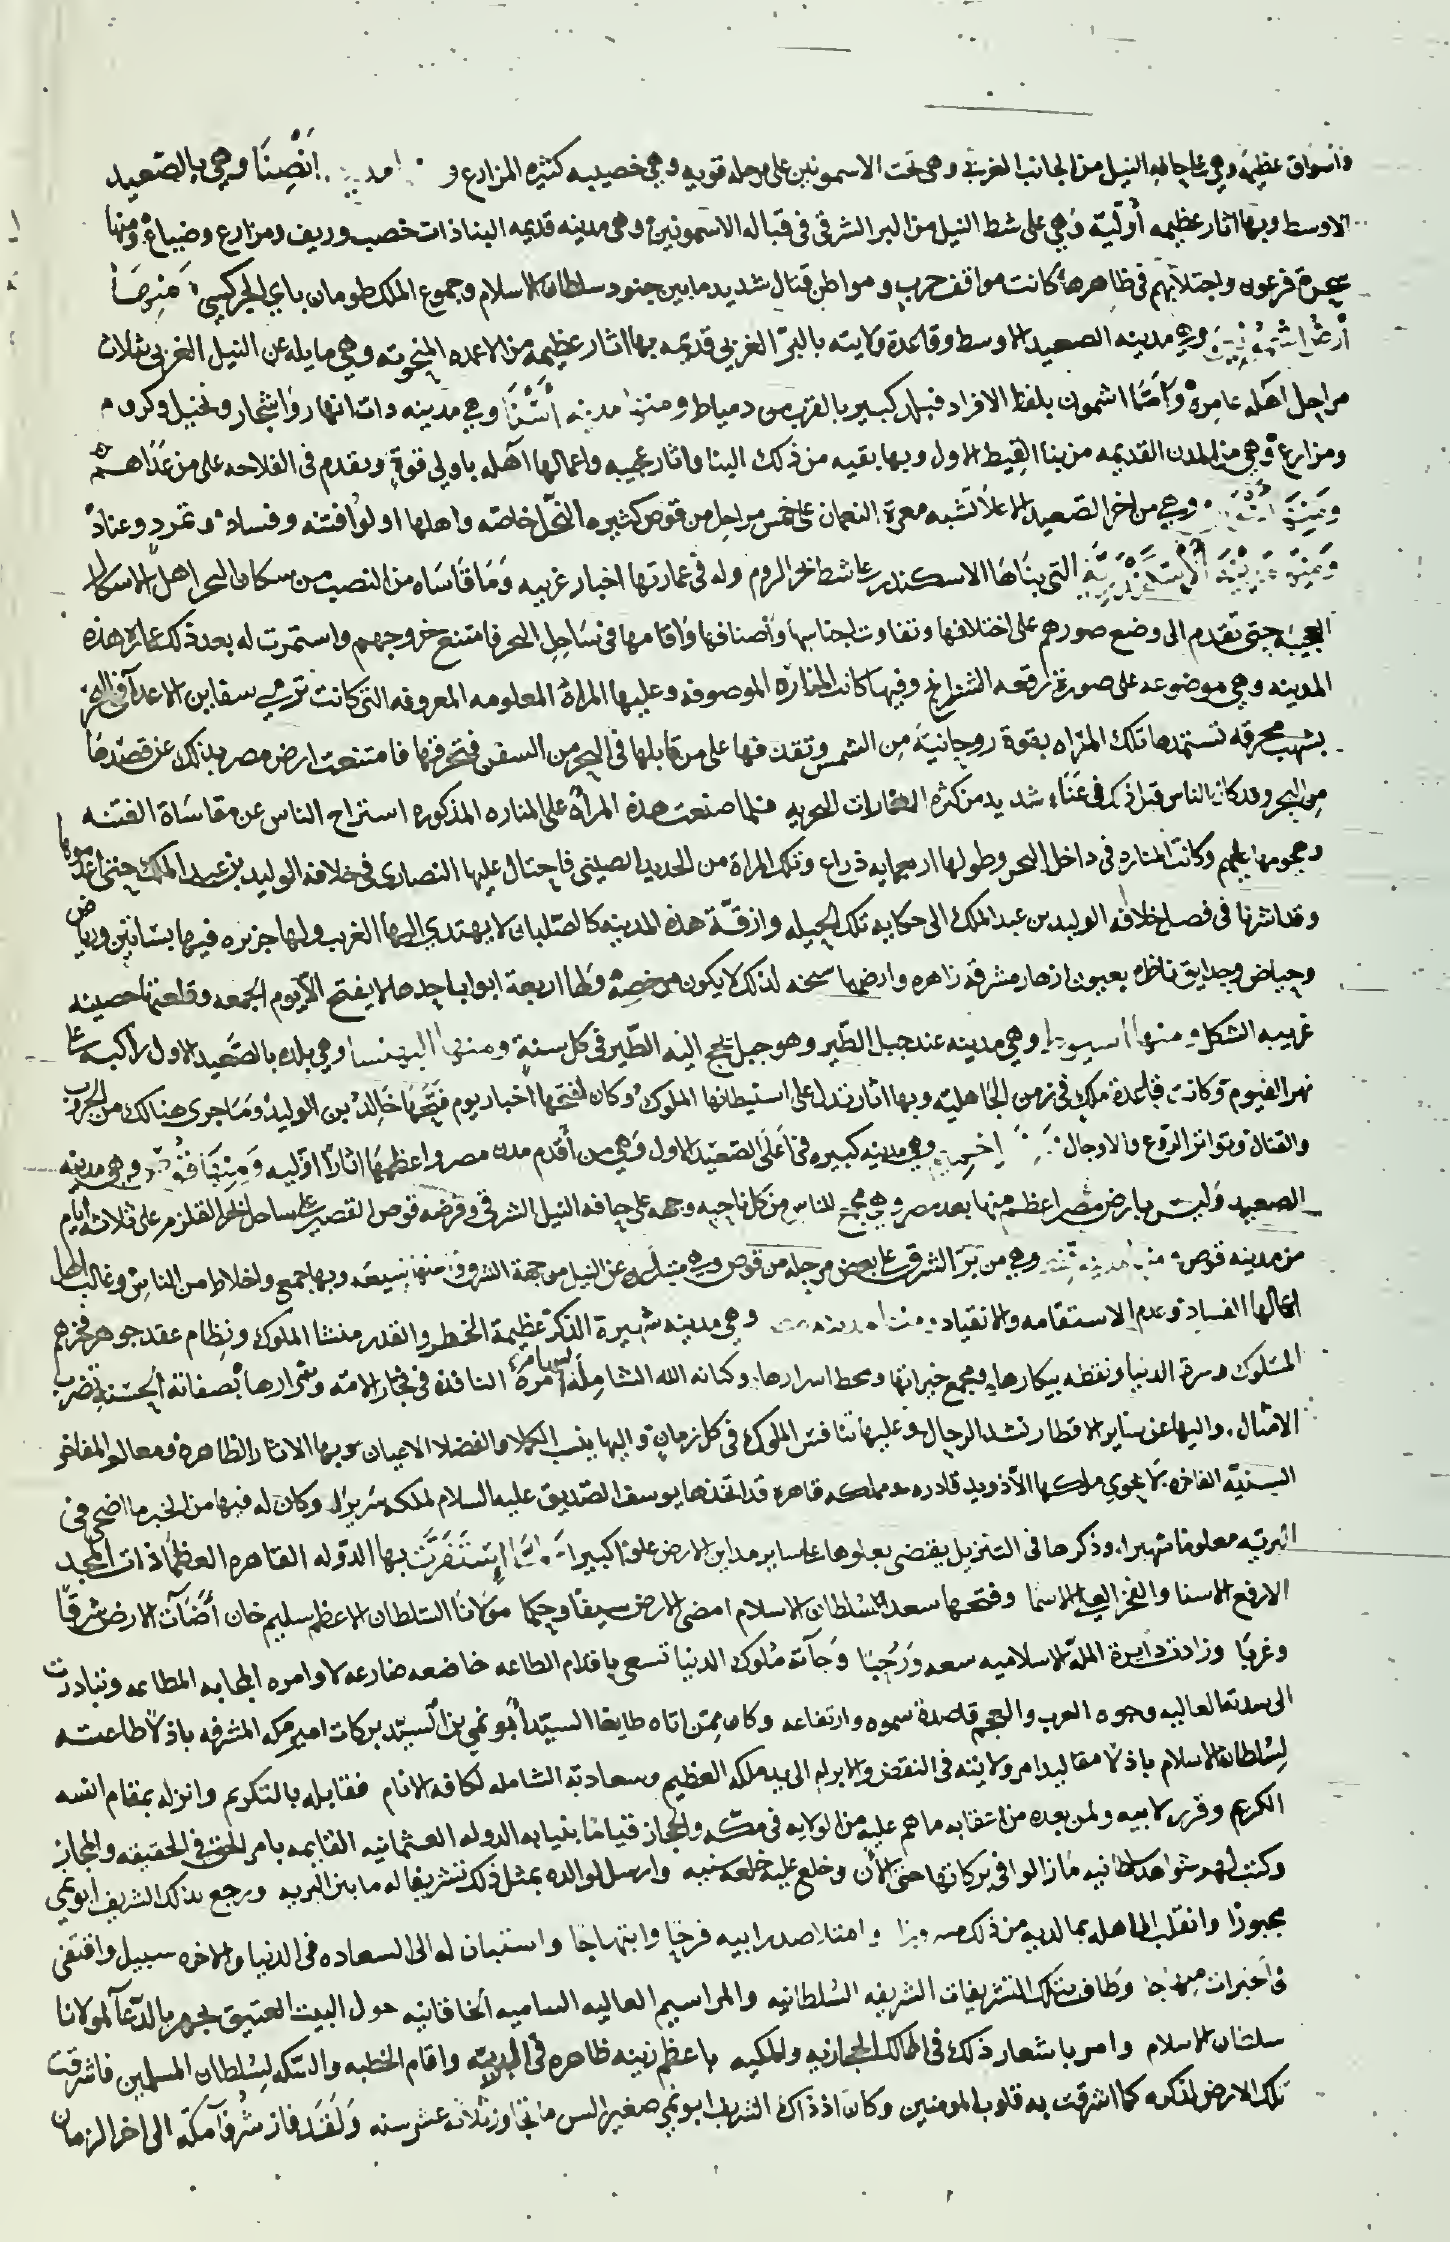 واسواق عظيمه وهي على جانب النيل من الجانب الغربي وهي تحت الاسمونين على مرحله قويه وهي خصيبه كثيره المزارع و اَنْصِنَا وهي بالصّعيد
الاوسط وبها اثار عظيمه أوليّة وَهي على شط النيل من البر الشرقى فى قباله الاشمونين وهى مدينه قديمه البنا ذات خصب وريف ومزارع وضياع ومنها
سحرة فرعون واجتلابهم فى ظاهرها كانت مواقف حرب ومواطن قتال شديد ما بين جنود سلطان الاسلام وجموع الملك طومان باي الجركسي
وهي مدينه الصعيد الاوسط وقاعدة ولايته بالبرّ الغربي قديمه بها اثار عظيمه من الاعمده المنحوته وهي مايله عن النيل الغربى بثلاث
مراحل آهله عامرة وَاَمّا اشمون بلفظ الافراد فبلد كبير بالقرب من دمياط ومنها مدينه أسْنَا وهي مدينه ذات انهار وَاشجار ونخيل وكروم
ومزارع وهي من المدن القديمه من بنا القبط الاول وبها بقيه من ذلك البنا واثار عجيبه واعمالها آهله باولي قوة وتقدم فى الفلاحه على من عداهم
وهي من اخر الصّعيد الاعلا تشبه معرة النعمان على خمس مراحل من قوص كثيره النخل خاصّه واهلها اولوا فتنه وفساد وتمرد وعناد
التى بناهَا الاسكندر على شط بحر الروم وله فى عمارتها اخبار غريبه وَمَا قَاسَاه من النصب من سكان البحر اهل الاشكال
العجيبه حتى تقدم الى وضع صورهم على اختلافها وتفاوت اجناسها وأصنافها وَاقامها فى سَاحِل البحر فامتنع خروجهم واستمرت له بعد ذلك عمارة هذه
المدينه وهي موضوعه على صورة رقعه الشطرنج وفيها كانت المناره الموصوفه وعليها المراة المعلومه المعروفه التى كانت ترمي سفاين الاعدا فى البحر
بشهب محرقه تستمدها تلك المرّاه بقوة روحانية من الشمس وتقذفها على من قابلها فى البحر من السفن فتحرقها فامتنعت ارض مصر بذلك عن قصد مَا
من البحر وقد كان الناس قبل ذلك فى عَنَاء شديد من كثره الغارات البحريه فلما صنعت هذه المرأة على المناره المذكوره استراح الناس عن مقاساة الفتنه
وهجومها عليهم وكانت المناره فى داخل البحر وطولها اربعمايه ذراع وتلك المراة من الحديد الصينى فاحتال عليها النصارى فى خلافه الوليد بن عبد الملك حتى اعدموها
وقد اشرنا فى فصل خلافه الوليد بن عبد الملك الى حكايه تلك الحيله وازقّة هذه المدينه كالصّلبان لا يهتدي اليها الغريب ولها جزيره فيها بسَاتين ورياض
وحياض وحدايق ناظره بعيون ازهار مشرقه زاهره وارضها سبخه لذلك لا يكون مرخصة وَلها اربعة ابواب احدها لا يفتح الا يوم الجمعه وقلعتها حصينه
غريبه الشكل ومنها اسيوط وهي مدينه عند جبل الطّير وهو جبل يحج اليه الطّير فى كل سنة ومنها البهنسا وهي بلده بالصّعيد الاول راكبه على
نهر الفيوم وكانت قاعدة ملك فى زمن الجاهليّه وبها اثار تدل على استيطانها الملوك وكان لفتحها اخبار يوم فتحها خَالِد بن الوليد وَمَا جرى هنالك من الحروب
والقتال وتواتر الروع والاوجال اخميم وهي مدينه كبيره فى اَعلَى الصَعيد الاول وَهي من أقدم مدن مصر واعظمهَا اثارًا اوّليه وَمِنهَا وهى مدينه
الصعيد وَليس بارض مصر اعظم منها بعد مصر وهي مجمع للناس من كل ناحيه وجهه على حافه النيل الشرقي وفرضه قوص القصير على ساحل بحر القلزم على ثلاثه ايام
من مدينه قوص وهي من برّ الشرق على بعض مرحله من قوص عن النيل من جهة الشرق وبها جمع واخلاط من الناس وغالب اهل
اعمالها الفساد وعدم الاستقامه والانقياد وهى مدينه شهيرة الذكر عظيمة الخطر والقدر منشا الملوك ونظام عقد جوهر فخرهم
المسلوك وسرة الدنيا ونقطه بيكارها ومجمع خيراتها ومحط اسرارها وكنانه الله الشامله النافذه فى الامه بصفاته الحسنه تضرب
الامثال واليها عن ساير الاقطار تشد الرحال وعليها تنافس الملوك فى كل زمان واليها ينسب الكملا والفضلا الاعيان وبها الاثار الظاهرة ومعالم المفاخر
السنيّه الفاخره لا يحوي ملكها الا ذو يد قادره ومملكه قاهرة قد اتخذها يوسف الصّديق عليه السلام لملكه سَريرًا وكان له فيها من الخبر ما اضحى فى
البريه معلومًا شهيرا وذكرها فى التنزيل يقضى بعلوها على ساير مداين الارض علوّا كبيرا وَلمّا اِستَقَرَّت بها الدّوله القاهره العظمى ذات المجد
الارفع الاسنا والفخر العالى الاسما وفتحها سعد السُلطان الاسلام امضى الارض سيفًا وحكما مولانَا السّلطان الاعظم سليم خان أضَآت الارض شرقًا
وغربًا وزادت دايرة الملّه الاسلاميه سعه وَرُحبًا وَجآته مُلوك الدنيا تسعى باقدام الطاعه خاضعه ضارعه لاوامره المجابه المطاعه وتبادرت
الى سدته العاليه وجوه العرب والعجم قاصدة سموه وارتفاعه وكان ممّن اتاه طايعًا السيّد أبو نمي بن السيّد بركات امير مكه المشرفه باذلًا طاعته
لسُلطان الاسلام باذلًا مقاليد امر ولايته فى النقض والابرام الى يد ملكه العظيم وسعادته الشامله لكافه الانام فقابله بالتكريم وانزله بمقام انسه
الكريم وقرر لابيه ولمن بعده من اعقابه ما هم عليه من الولايه فى مكّه والحجاز قيامًا بنيابه الدوله العثمانيه القايمه بامر الحق فى الحقيقه والمجاز
وكتب لهم شواهد سلطانيه مَا زالوا فى بركاتها حتى الآن وخلع عليه خلعه سنيه وارسل لوالده بمثل ذلك تشريفًا له ما بين البريه ورجع بذلك الشريف ابو نمي
مجبورًا وانقلب الى اهله بما لديه من ذلك مسرورًا وامتلا صدر ابيه فرحًا وابتهاجًا واستبان له الى السعاده فى الدنيا والاخره سبيل واقتفى
فى الخيرات منهاجًا وطاف بتلك التشريفات الشريفه السُلطانيه والمراسيم العاليه الساميه الخاقانيه حول البيت العتيق بجهر بالدّعآ لمولانا
سلطان الاسلام وامر باشعار ذلك فى الممالك الحجازيه والمكيه باعظم زينه ظاهره فى البريّه واقام الخطبه والسّكه لِسُلطان المسلمين فاشرقت
تلك الارض لذكره كما اشرقت به قلوب المومنين وكان اذ ذاك الشريف ابو نمي صغير السن ما تجاوز ثلاثه عشر سنه وَلقَد فاز شُرفآ مكّه الى اخر الزمان